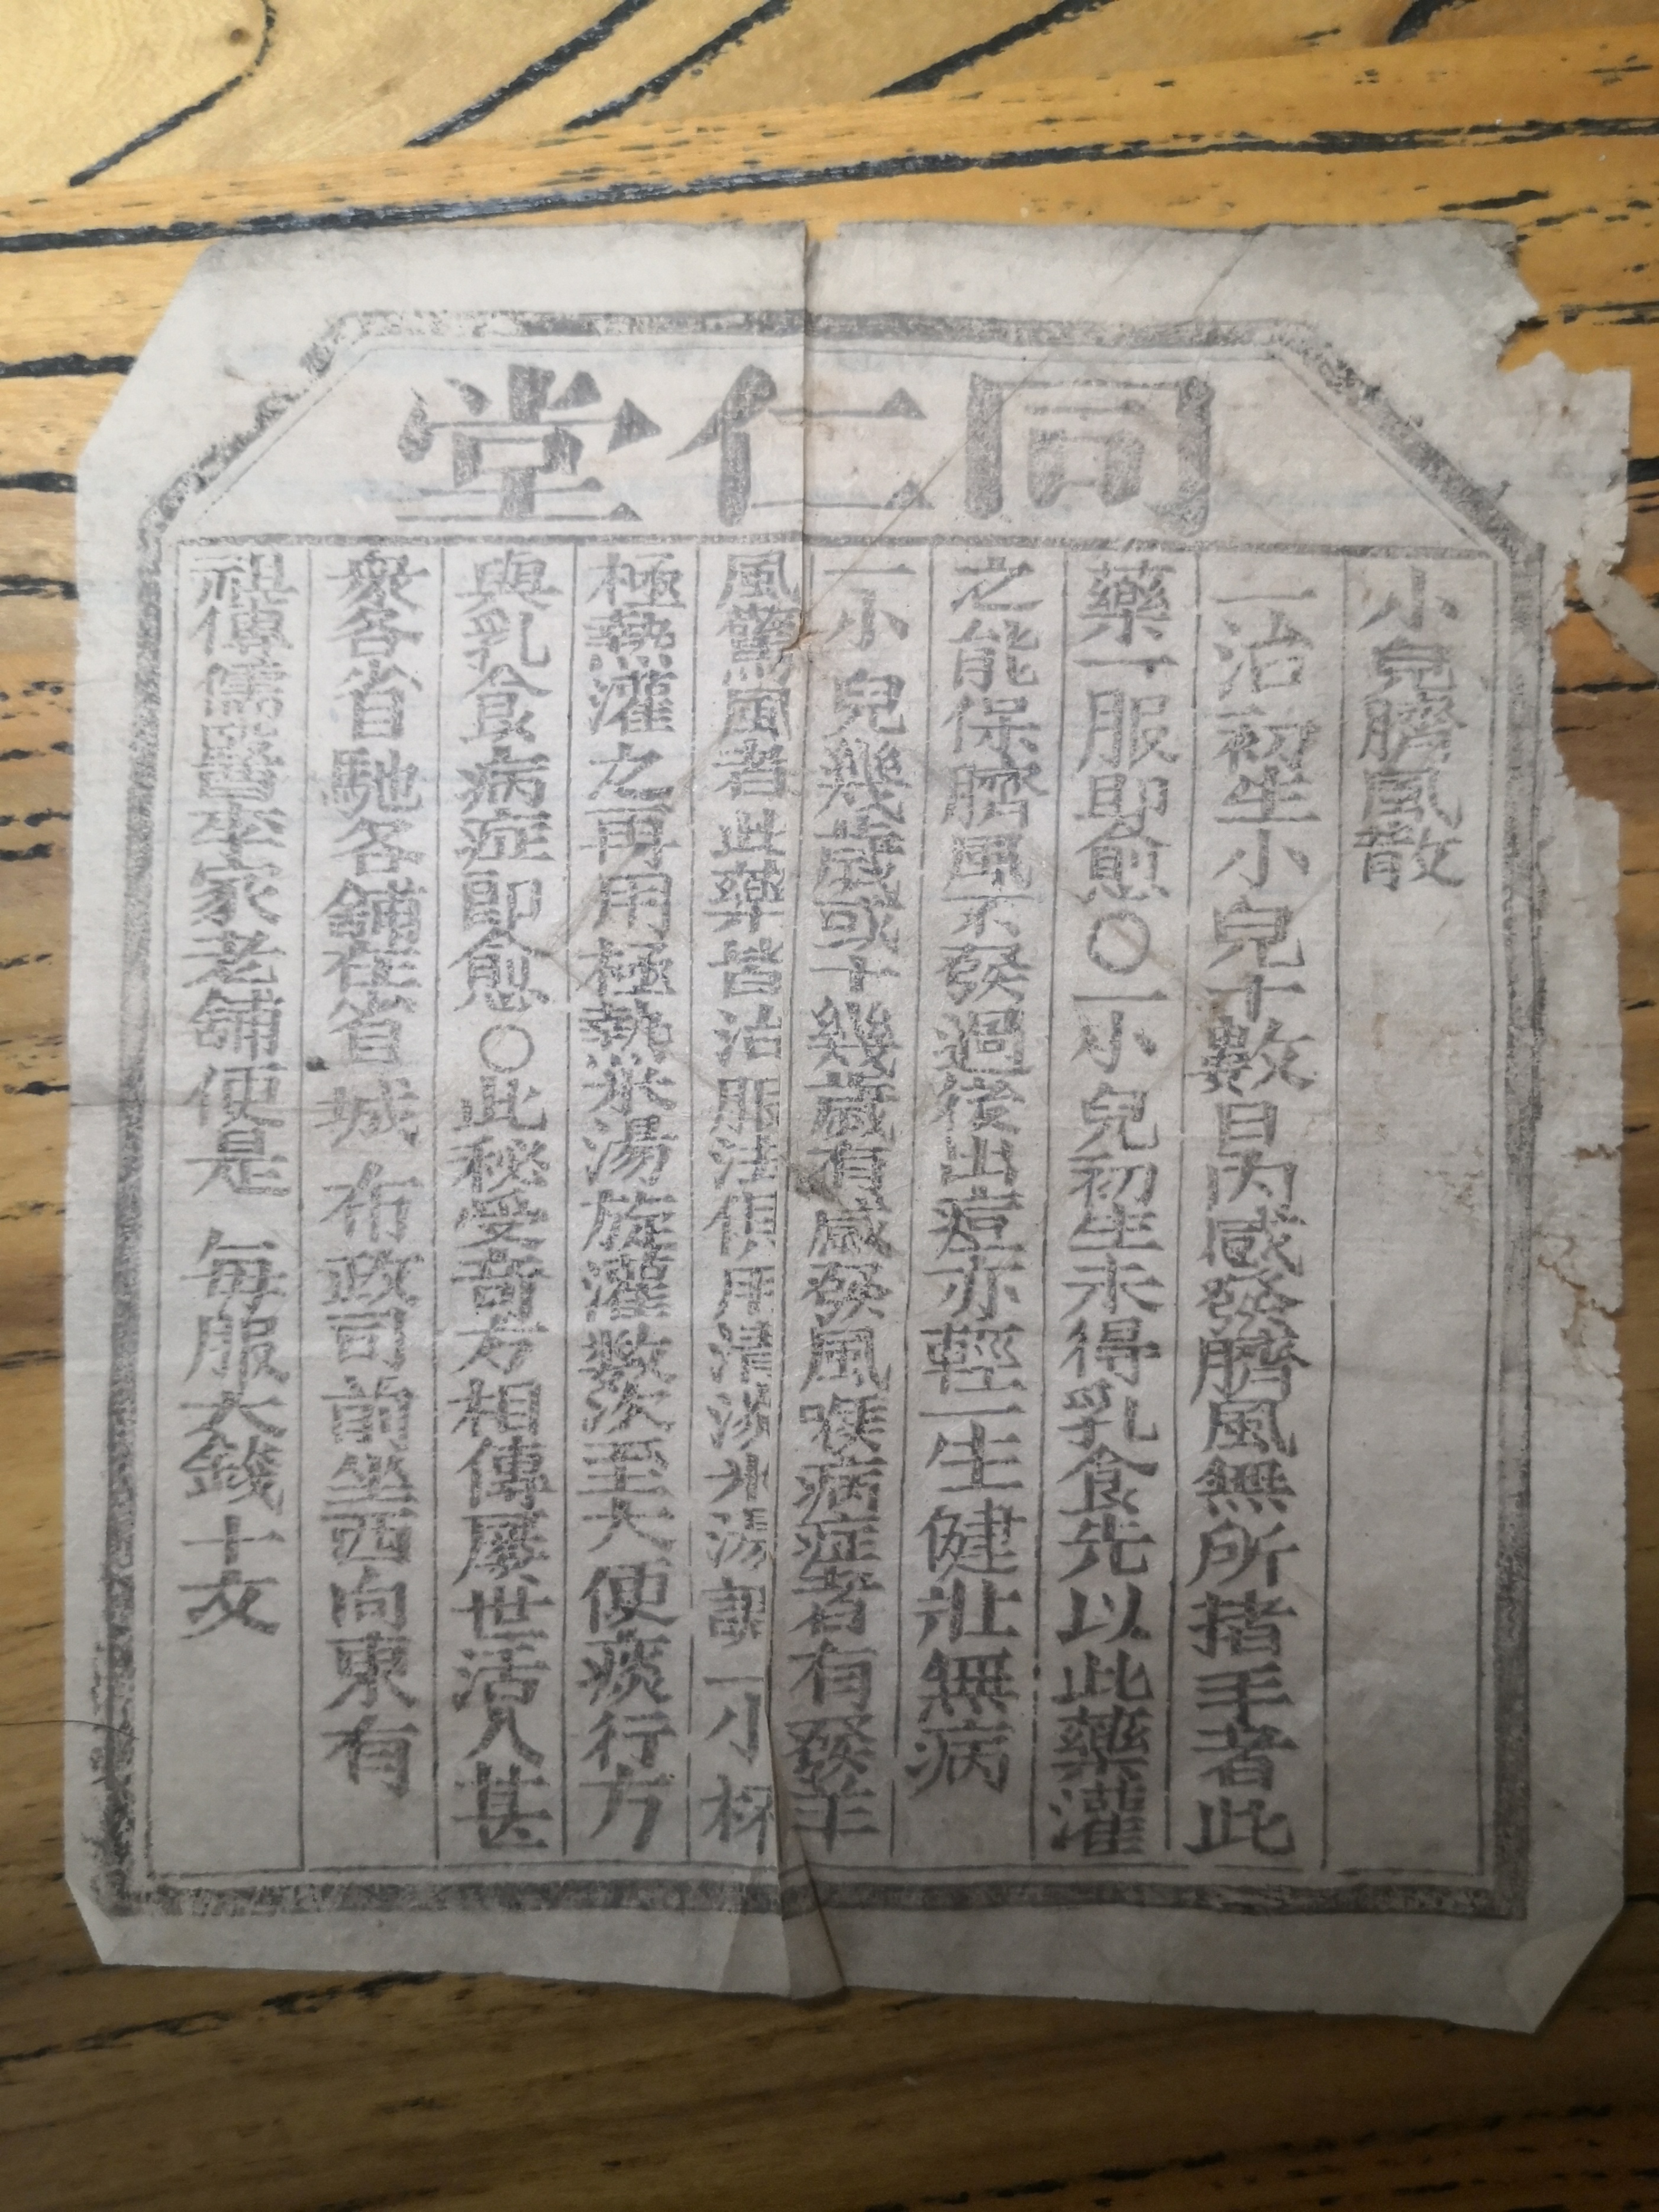 同仁堂
小兒臍風散
一治初生小兒十數日內感發臍風無所措手者此
藥一服即愈〇一小兒初生未得乳食先以此藥灌
之能保臍風不發過後出痘亦輕一生健壯無病
一小兒幾歲或十幾歲有感發風喉病症者有發羊
風驚風者此藥皆治服法俱用清湯水湯調一小杯
極熱灌之再用極熱米湯旋灌数次至大便痰行方
與乳食病症即愈〇此秘受奇方相傳屡世活人甚
衆各省馳名舖在省城 布政司前坐西向東有
祖傳儒醫李家老舖便是 每服大錢十文